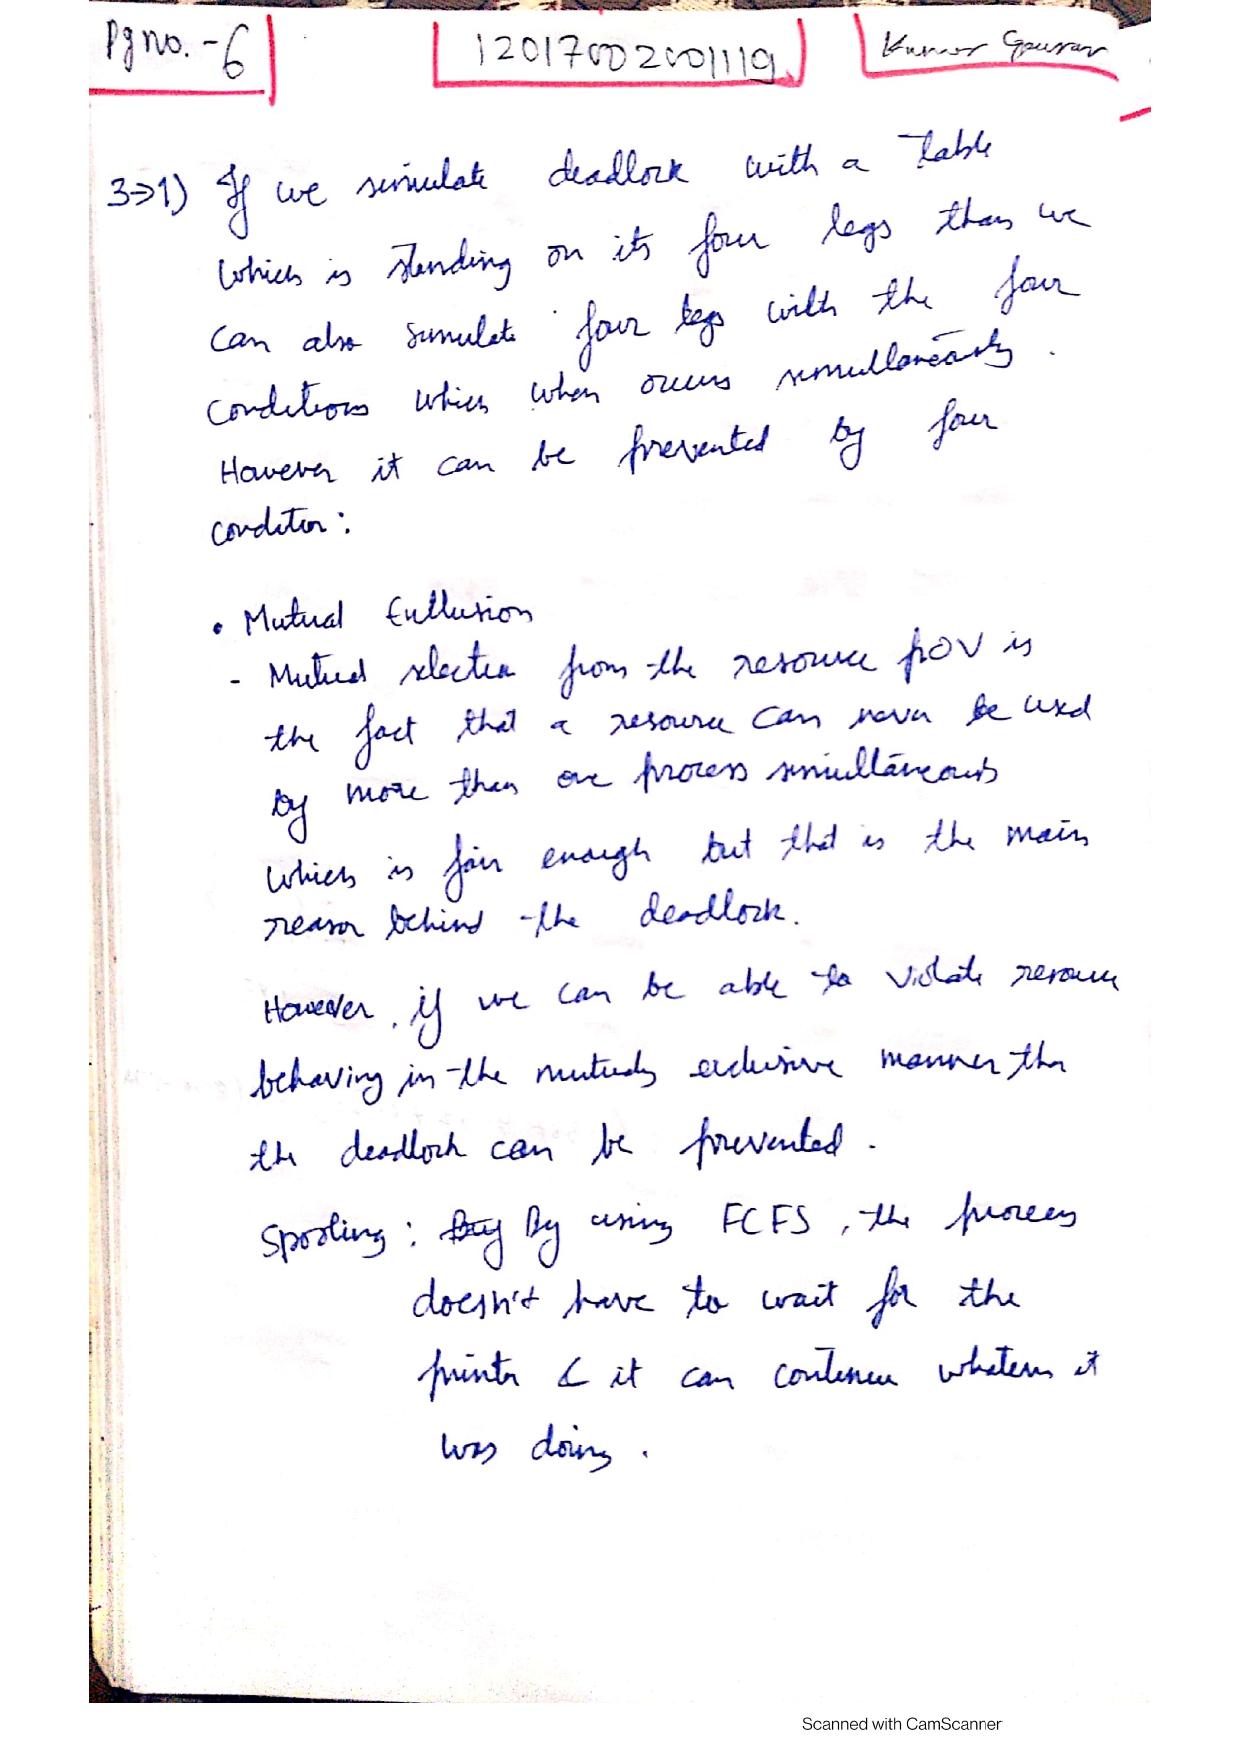 Pg no. - 6
12017002001119
Kumar Gourav
3⇒1) If we simulate deadlock with a table
which is standing on its four legs than we
can also simulate four legs with the four
conditions which when occurs simultaneously.
However it can be prevented by four
condition:
• Mutual Exllusion
- Mutual selection from the resource POV is
the fact that a resource can never be used
by more than one process simultaneously
which is fair enough but that is the main
reason behind the deadlock.
However, if we can be able to violate resource
behaving in the mutually exclusive manner then
the deadlock can be prevented.
Spooling : By By using FCFS, the process
doesn't have to wait for the
printer & it can continue whatever it
was doing.
Scanned with CamScanner